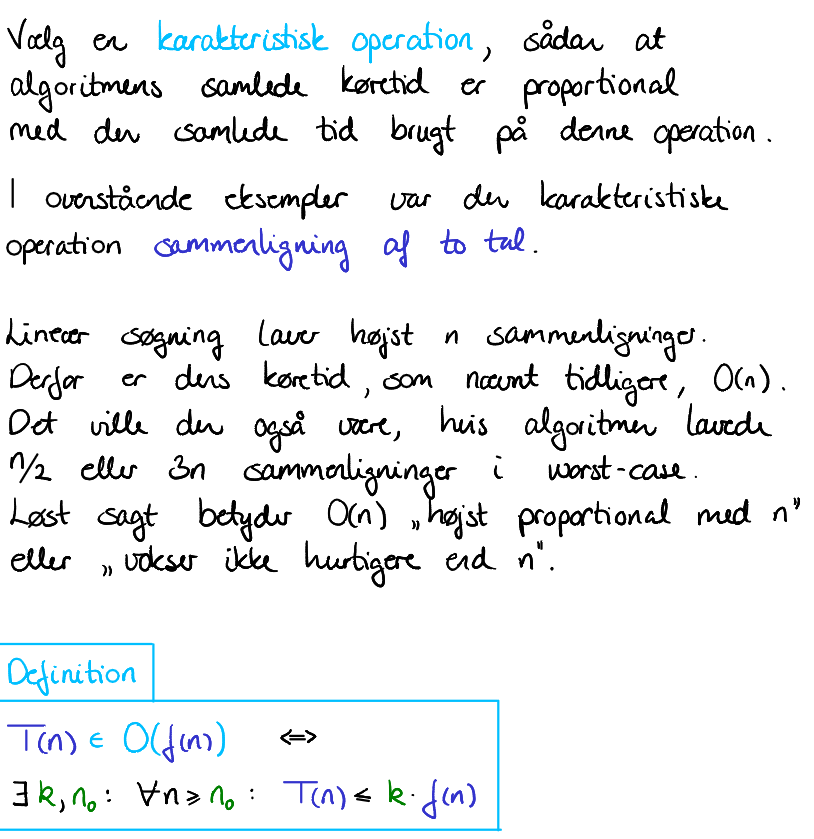 Vælg en karakteristisk operation, sådan at
algoritmens samlede køretid er proportional
med den samlede tid brugt på denne operation.
I ovenstående eksempler var den karakteristiske
operation sammenligning af to tal.
Lineær søgning laver højst n sammenligninger.
Derfor er dens køretid, som nævnt tidligere, O(n).
Det ville den også være, hvis algoritmen lavede
n/2 eller 3n sammenligninger i worst-case.
Løst sagt betyder O(n) „højst proportional med n"
eller „vokser ikke hurtigere end n".
Definition
T(n) ∈ O(f(n)) ⇔
∃ k, n₀ : ∀n ≥ n₀ : T(n) ≤ k · f(n)